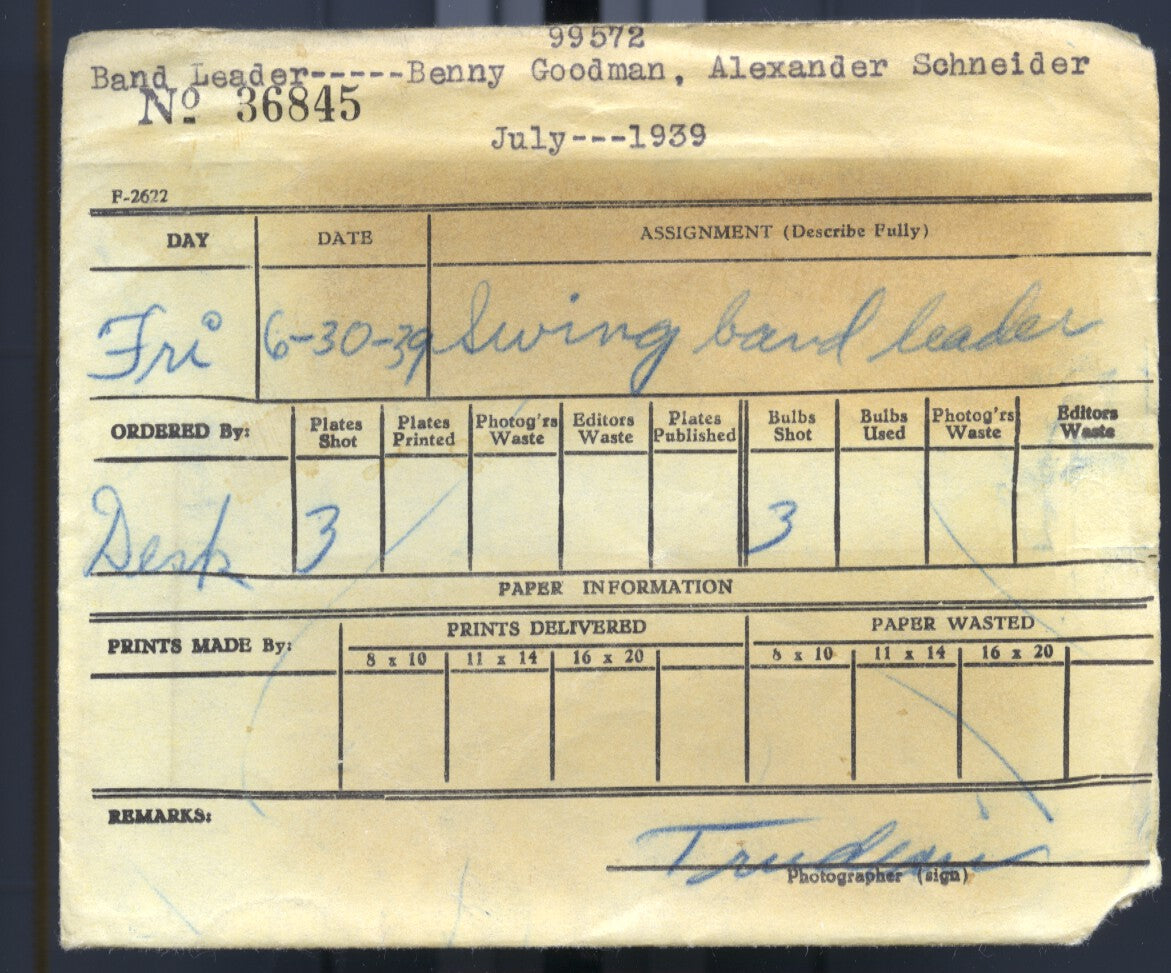 99572
Band Leader-----Benny Goodman, Alexander Schneider
Nº 36845
July---1939
F-2622
DAY DATE ASSIGNMENT (Describe Fully)
Fri 6-30-39 Swing band leader
ORDERED By: Plates Shot Plates Printed Photog'rs Waste Editors Waste Plates Published Bulbs Shot Bulbs Used Photog'rs Waste Editors Waste
Desk 3 3
PAPER INFORMATION
PRINTS MADE By: PRINTS DELIVERED PAPER WASTED
8 x 10 11 x 14 16 x 20 8 x 10 11 x 14 16 x 20
REMARKS:
Photographer (sign)